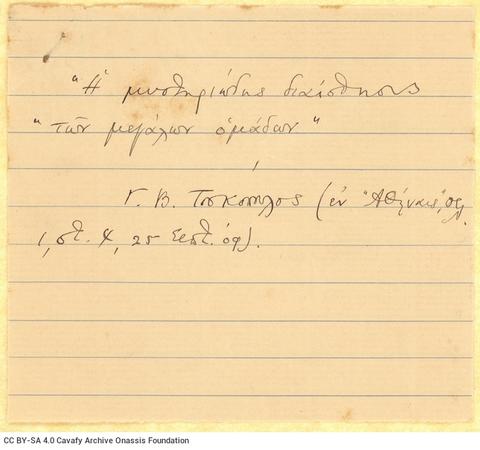 "Η μυστηριώδης διαίσθησις
"των μεγάλων ομάδων"
Γ. Β. Τσοκόπουλος (εν "Αθήναις", σελ.
1, στ. 4, 25 Σεπτ. 09).
CC BY-SA 4.0 Cavafy Archive Onassis Foundation